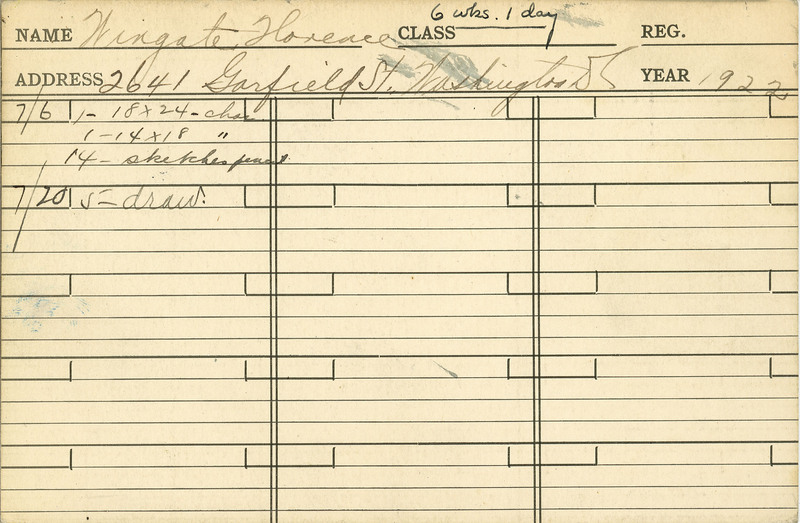 6 wks. 1 day
NAME Wingate, Florence CLASS REG.
ADDRESS 2641 Garfield St. Washington DC YEAR 1922
7/6 1- 18x24 - char
1-14x18 "
14 - sketches pencil
7/20 5- draw.